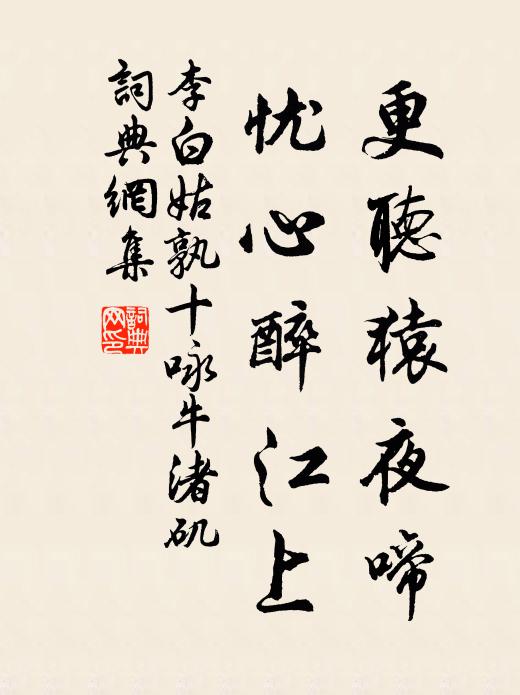 更聽猿夜啼
忧心醉江上
李白姑孰十咏牛渚矶
詞典網集
詞典网印